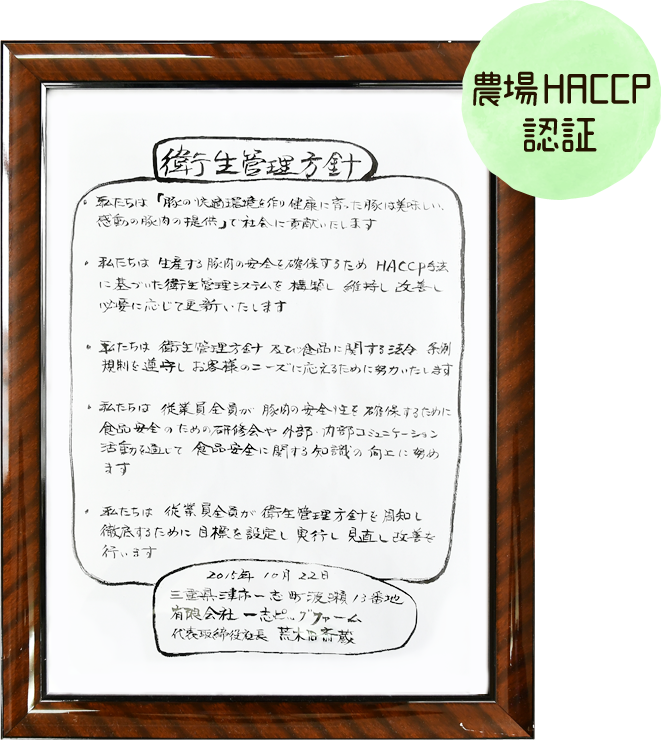 農場HACCP
認証
衛生管理方針
・私たちは「豚の快適環境を作り健康に育った豚は美味しい、
感動の豚肉の提供」で社会に貢献いたします
・私たちは 生産する豚肉の安全を確保するため HACCP方法
に基づいた衛生管理システムを 構築し 維持し 改善し
必要に応じて更新いたします
・私たちは 衛生管理方針 及び食品に関する法令 条例
規制を遵守し お客様のニーズに応えるために努力いたします
・私たちは 従業員全員が 豚肉の安全性を確保するために
食品安全のための研修会や 外部・内部コミュニケーション
活動を通じて 食品安全に関する知識の向上に努め
ます
・私たちは 従業員全員が 衛生管理方針を周知し
徹底するために 目標を設定し 実行し 見直し改善を
行います
2015年 10月 22日
三重県津市一志町波瀬 13番地
有限会社 一志ピッグファーム
代表取締役社長 荒木田斎蔵